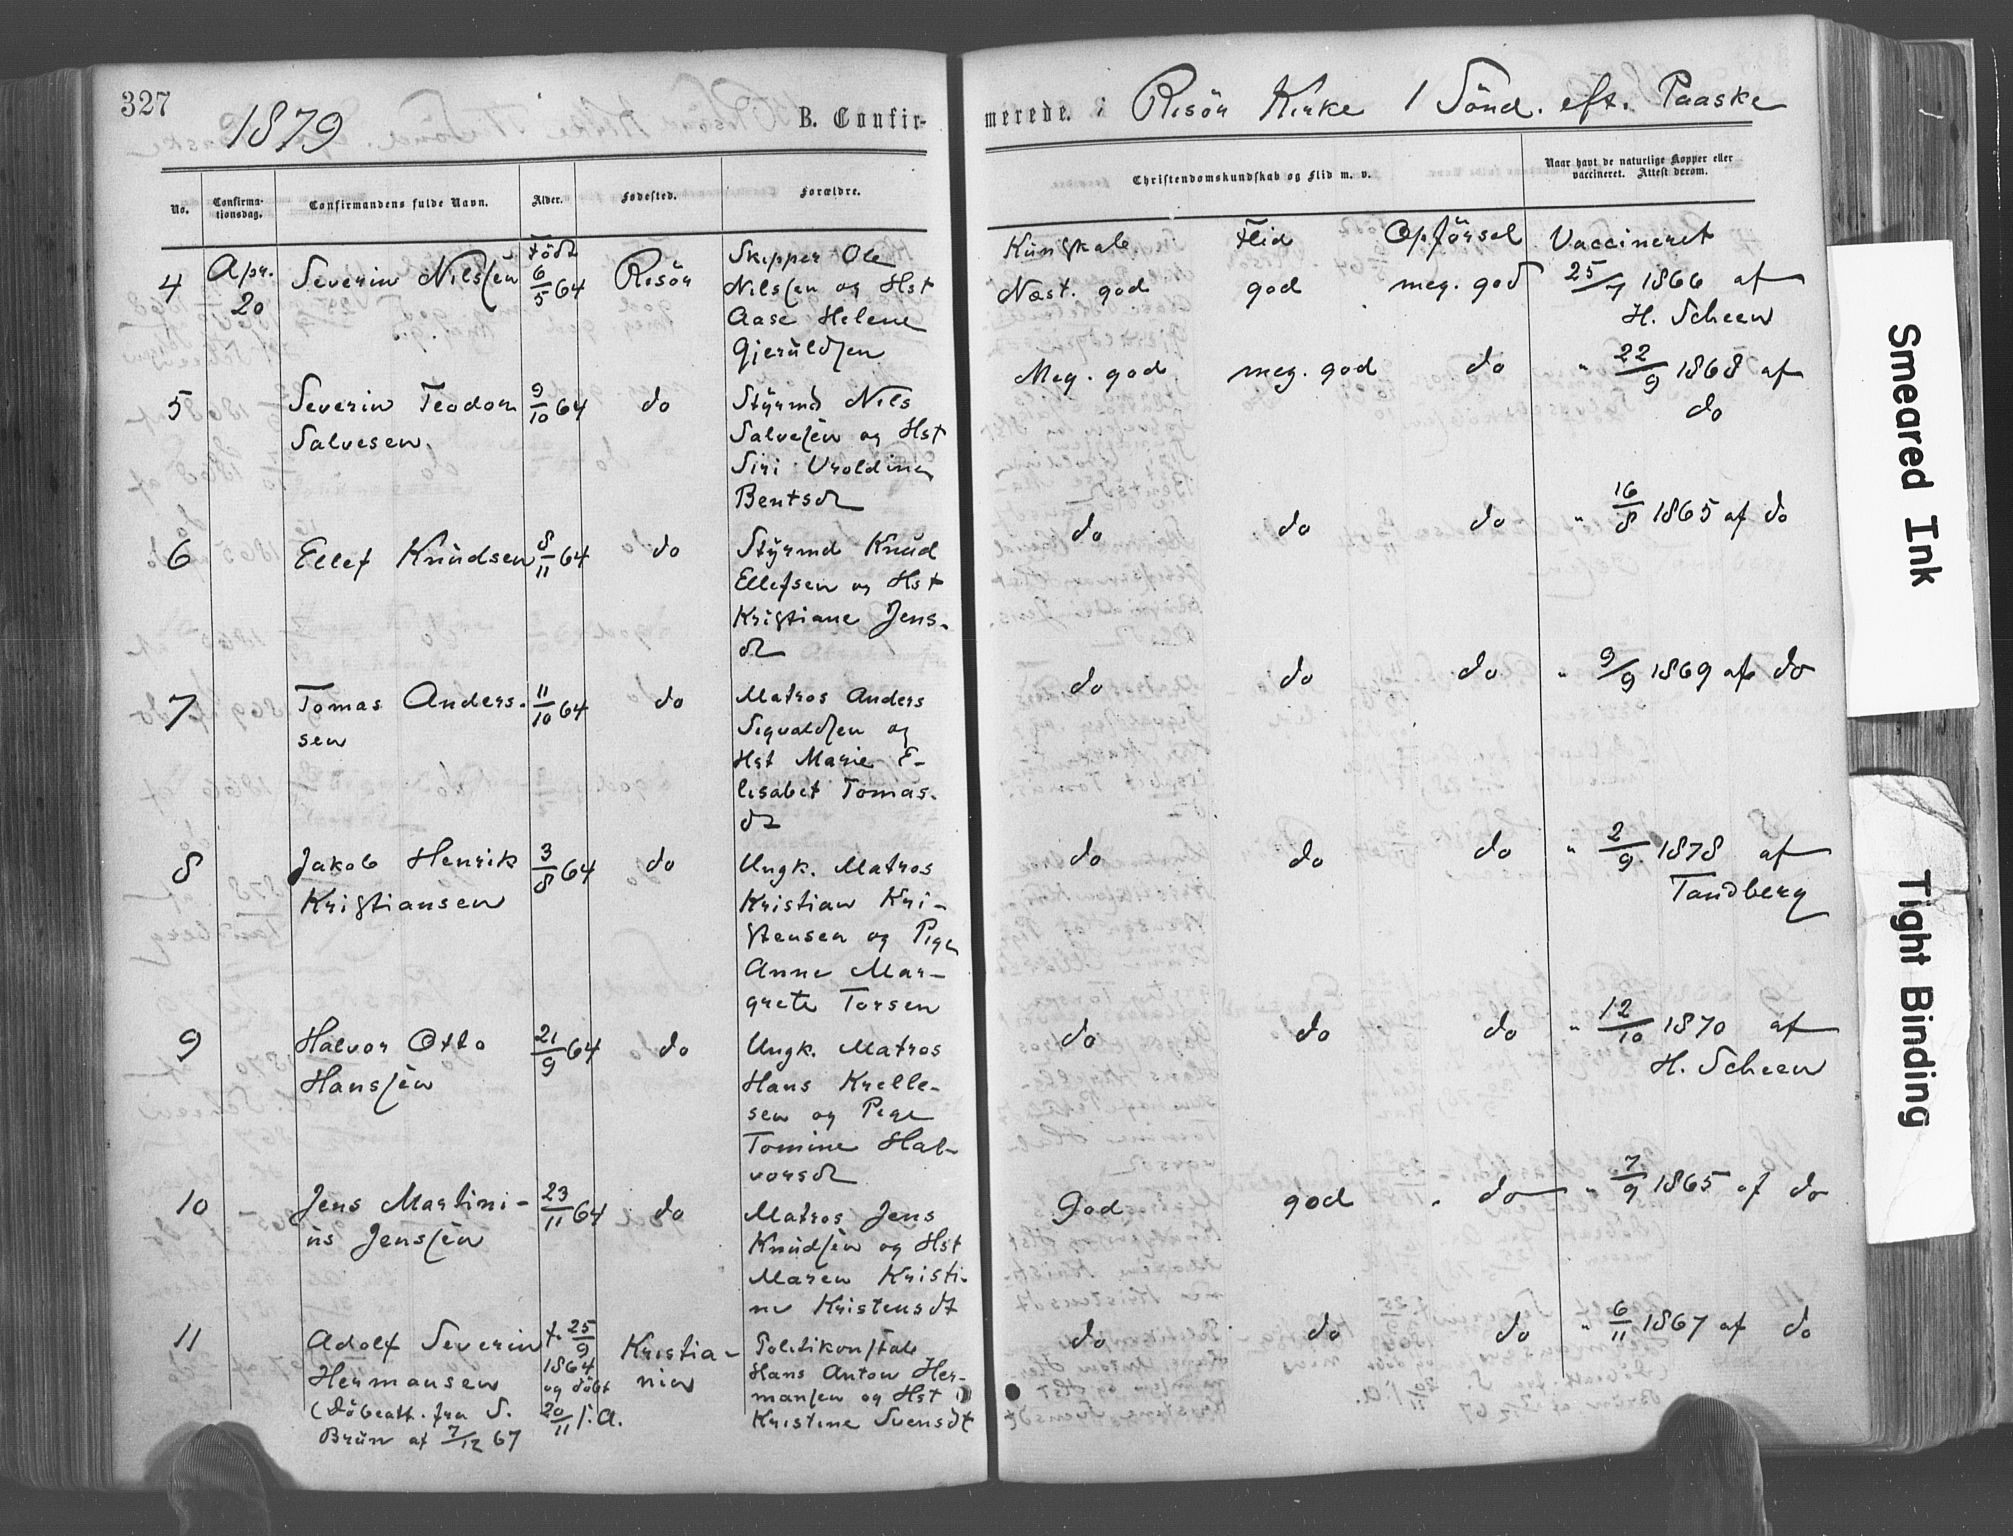 327
1879
B. Confir-
merede. i Risör Kirke 1 Sönd. eft. Paaske
No.
Confirma-
tionsdag.
Confirmandens fulde Navn.
Alder.
Fødested.
Forældre.
Christendomskundskab og Flid m. v.
Naar havt de naturlige Kopper eller
vaccineret. Attest derom.
Kundskab Flid Opförsel Vaccineret
4 Apr. 20 Severin Nilssen Född 6/5 64 Risör
Skipper Ole
Nilssen og Hst
Aase Helene
Gjeruldsen
Næst. god god meg. god 25/7 1866 af
H. Scheen
5 Severin Teodor
Salvesen.
9/10 64 do
Styrmd Nils
Salvesen og Hst
Siri Uroldine
Bentsdt
Meg. god meg. god do " 22/9 1868 af
do
6 Ellef Knudsen 8/11 64 do
Styrmd Knud
Ellefsen og Hst
Kristiane Jens-
dt
do do do " 16/8 1865 af do
7 Tomas Anders-
sen
11/10 64 do
Matros Anders
Sigvaldsen og
Hst Marie E-
lisabet Tomas-
dt
do do do " 9/9 1869 af do
8 Jakob Henrik
Kristiansen
3/8 64 do
Ungk. Matros
Kristian Kri-
stensen og Pige
Anne Mar-
grete Torsen
do do do " 2/9 1878 af
Tandberg
9 Halvor Otto
Hanssen
21/9 64 do
Ungk. Matros
Hans Krelle-
sen og Pige
Tomine Hal-
vorsdt
do do do " 12/10 1870 af
H. Scheen
10 Jens Martini-
us Jenssen
23/11 64 do
Matros Jens
Knudsen og Hst
Maren Kristi-
ne Kristensdt
God god do " 7/9 1865 af do
11 Adolf Severin
Hermansen
(Döbeatt. fra S.
Brün af 7/12 67
f. 25/9
1864
og döbt
20/11 s. A.
Kristia-
nia
Politikonstabe
Hans Anton Her-
mansen og Hst
Kristine Svensdt
do do do " 6/11 1867 af do
Smeared Ink
Tight Binding